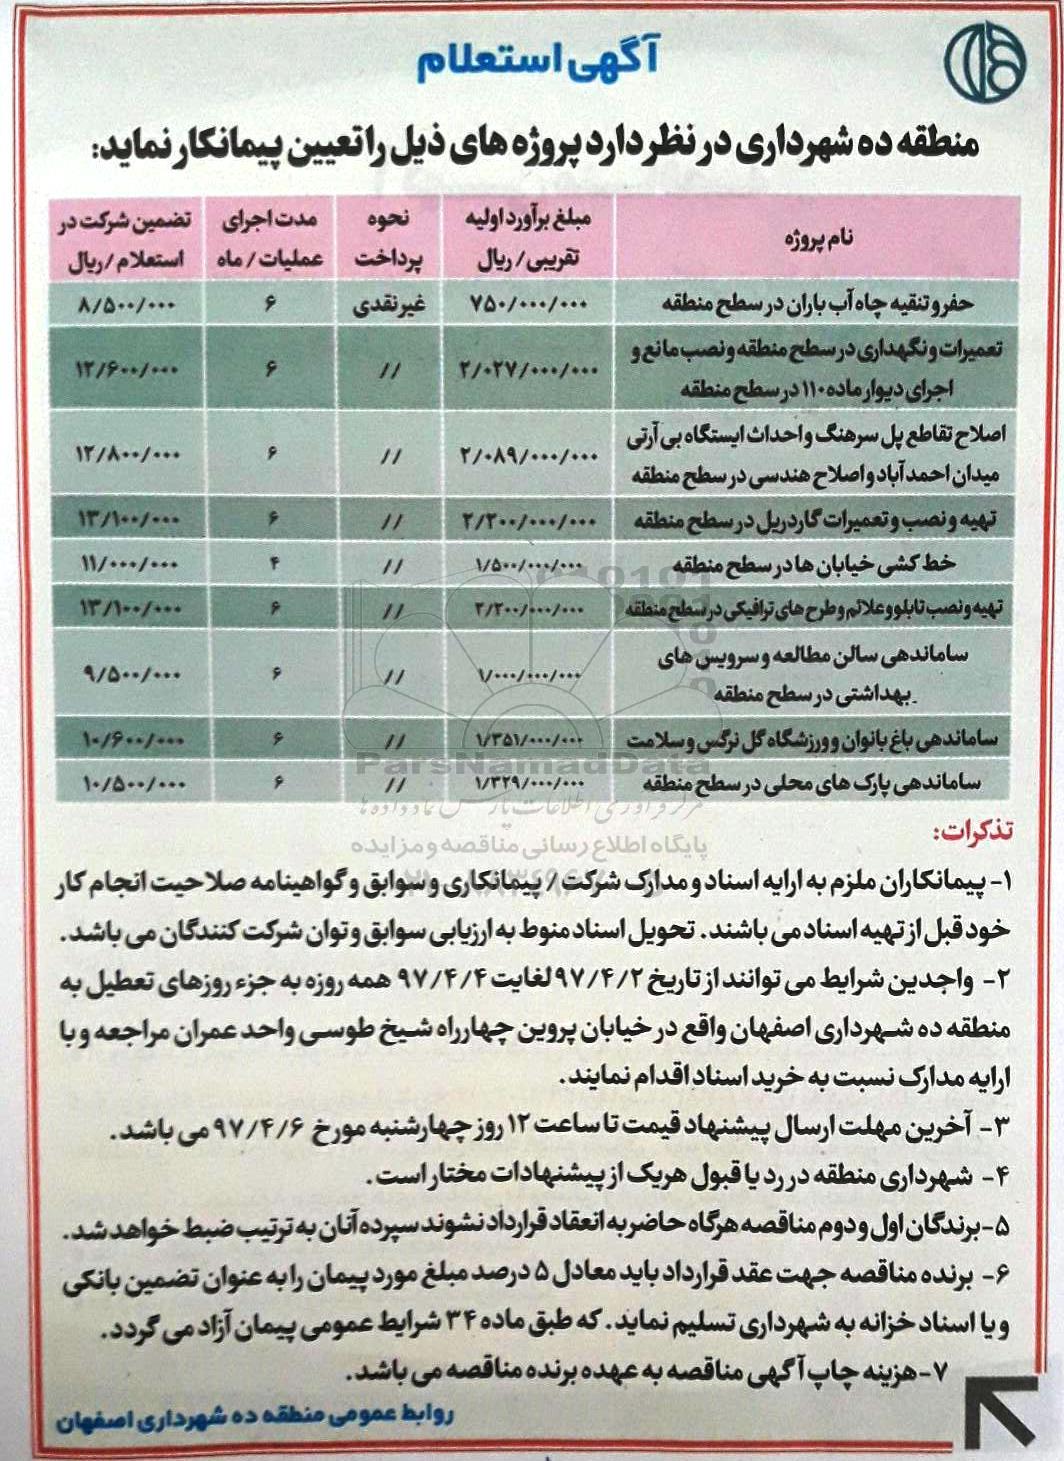 آگهی استعلام
منطقه ده شهرداری در نظر دارد پروژه های ذیل را تعیین پیمانکار نماید:
نام پروژه | مبلغ برآورد اولیه تقریبی/ریال | نحوه پرداخت | مدت اجرای عملیات/ماه | تضمین شرکت در استعلام/ریال
حفر و تنقیه چاه آب باران در سطح منطقه | ۷۵۰/۰۰۰/۰۰۰ | غیرنقدی | ۶ | ۸/۵۰۰/۰۰۰
تعمیرات و نگهداری در سطح منطقه و نصب مانع و
اجرای دیوار ماده ۱۱۰ در سطح منطقه | ۲/۰۲۷/۰۰۰/۰۰۰ | // | ۶ | ۱۲/۶۰۰/۰۰۰
اصلاح تقاطع پل سرهنگ و احداث ایستگاه بی آرتی
میدان احمدآباد و اصلاح هندسی در سطح منطقه | ۲/۰۸۹/۰۰۰/۰۰۰ | // | ۶ | ۱۲/۸۰۰/۰۰۰
تهیه و نصب و تعمیرات گاردریل در سطح منطقه | ۲/۲۰۰/۰۰۰/۰۰۰ | // | ۶ | ۱۳/۱۰۰/۰۰۰
خط کشی خیابان ها در سطح منطقه | ۱/۵۰۰/۰۰۰/۰۰۰ | // | ۴ | ۱۱/۰۰۰/۰۰۰
تهیه و نصب تابلو و علائم و طرح های ترافیکی در سطح منطقه | ۲/۲۰۰/۰۰۰/۰۰۰ | // | ۶ | ۱۳/۱۰۰/۰۰۰
ساماندهی سالن مطالعه و سرویس های
بهداشتی در سطح منطقه | ۱/۰۰۰/۰۰۰/۰۰۰ | // | ۶ | ۹/۵۰۰/۰۰۰
ساماندهی باغ بانوان و ورزشگاه گل نرگس و سلامت | ۱/۳۵۱/۰۰۰/۰۰۰ | // | ۶ | ۱۰/۶۰۰/۰۰۰
ساماندهی پارک های محلی در سطح منطقه | ۱/۳۲۹/۰۰۰/۰۰۰ | // | ۶ | ۱۰/۵۰۰/۰۰۰
ParsNamadData
پایگاه اطلاع رسانی مناقصه و مزایده
تذکرات:
۱- پیمانکاران ملزم به ارایه اسناد و مدارک شرکت / پیمانکاری و سوابق و گواهینامه صلاحیت انجام کار
خود قبل از تهیه اسناد می باشند. تحویل اسناد منوط به ارزیابی سوابق و توان شرکت کنندگان می باشد.
۲- واجدین شرایط می توانند از تاریخ ۹۷/۴/۲ لغایت ۹۷/۴/۴ همه روزه به جزء روزهای تعطیل به
منطقه ده شهرداری اصفهان واقع در خیابان پروین چهارراه شیخ طوسی واحد عمران مراجعه و با
ارایه مدارک نسبت به خرید اسناد اقدام نمایند.
۳- آخرین مهلت ارسال پیشنهاد قیمت تا ساعت ۱۲ روز چهارشنبه مورخ ۹۷/۴/۶ می باشد.
۴- شهرداری منطقه در رد یا قبول هریک از پیشنهادات مختار است.
۵- برندگان اول و دوم مناقصه هرگاه حاضر به انعقاد قرارداد نشوند سپرده آنان به ترتیب ضبط خواهد شد.
۶- برنده مناقصه جهت عقد قرارداد باید معادل ۵ درصد مبلغ مورد پیمان را به عنوان تضمین بانکی
و یا اسناد خزانه به شهرداری تسلیم نماید. که طبق ماده ۳۴ شرایط عمومی پیمان آزاد می گردد.
۷- هزینه چاپ آگهی مناقصه به عهده برنده مناقصه می باشد.
روابط عمومی منطقه ده شهرداری اصفهان